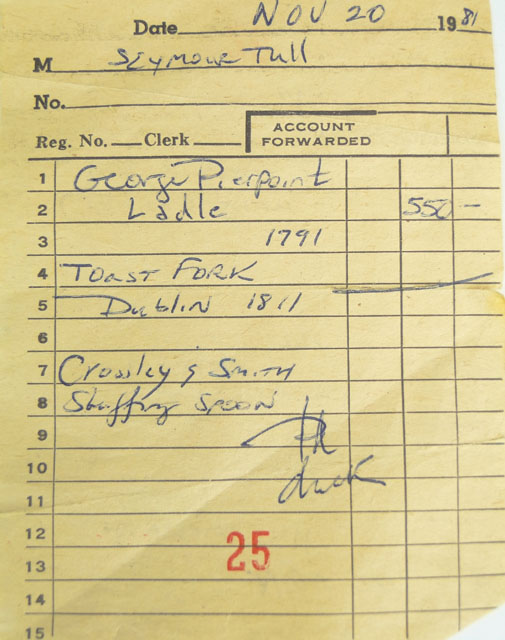 Date NOV 20 1981
M Seymour Tull
No.
Reg. No. Clerk ACCOUNT FORWARDED
1 George Pierpoint
2 Ladle 550 —
3 1791
4 Toast Fork
5 Dublin 1811
6
7 Crossley & Smith
8 Stuffing Spoon
9 Pd
10 check
11
12
25
13
14
15